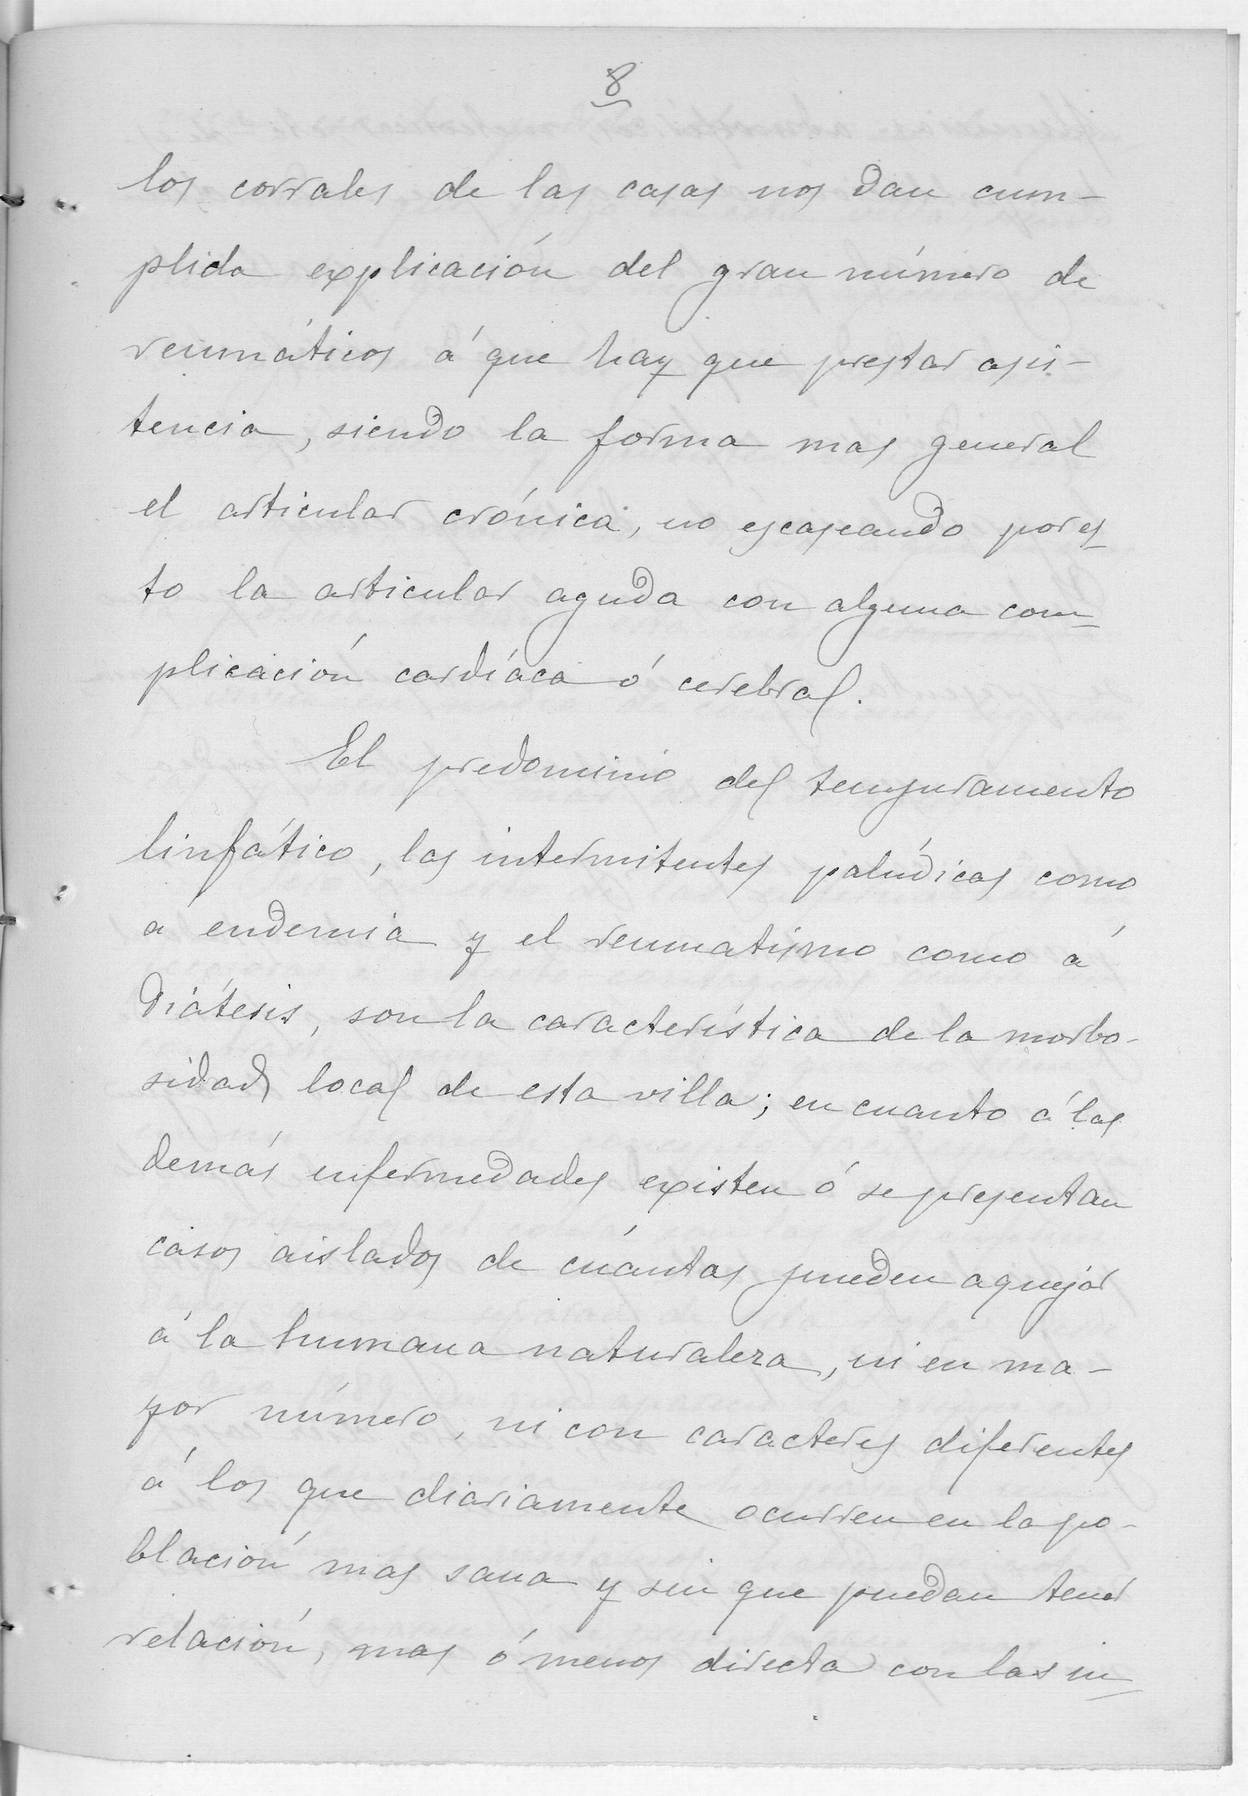 8
los corrales de las casas nos dan cum-
plida explicación del gran número de
reumáticos á que hay que prestar asis-
tencia, siendo la forma mas general
el articular crónica, no escaseando por es-
to la articular aguda con alguna com-
plicación cardíaca ó cerebral.
El predominio del temperamento
linfático, las intermitentes palúdicas como
á endemia y el reumatismo como á
diátesis, son la característica de la morbo-
sidad local de esta villa; en cuanto á las
demás enfermedades existen ó se presentan
casos aislados de cuántas pueden aquejar
á la humana naturaleza, ni en ma-
yor número, ni con caracteres diferentes
á los que diariamente ocurren en la po-
blación mas sana y sin que puedan tener
relación, mas ó menos directa con las in-